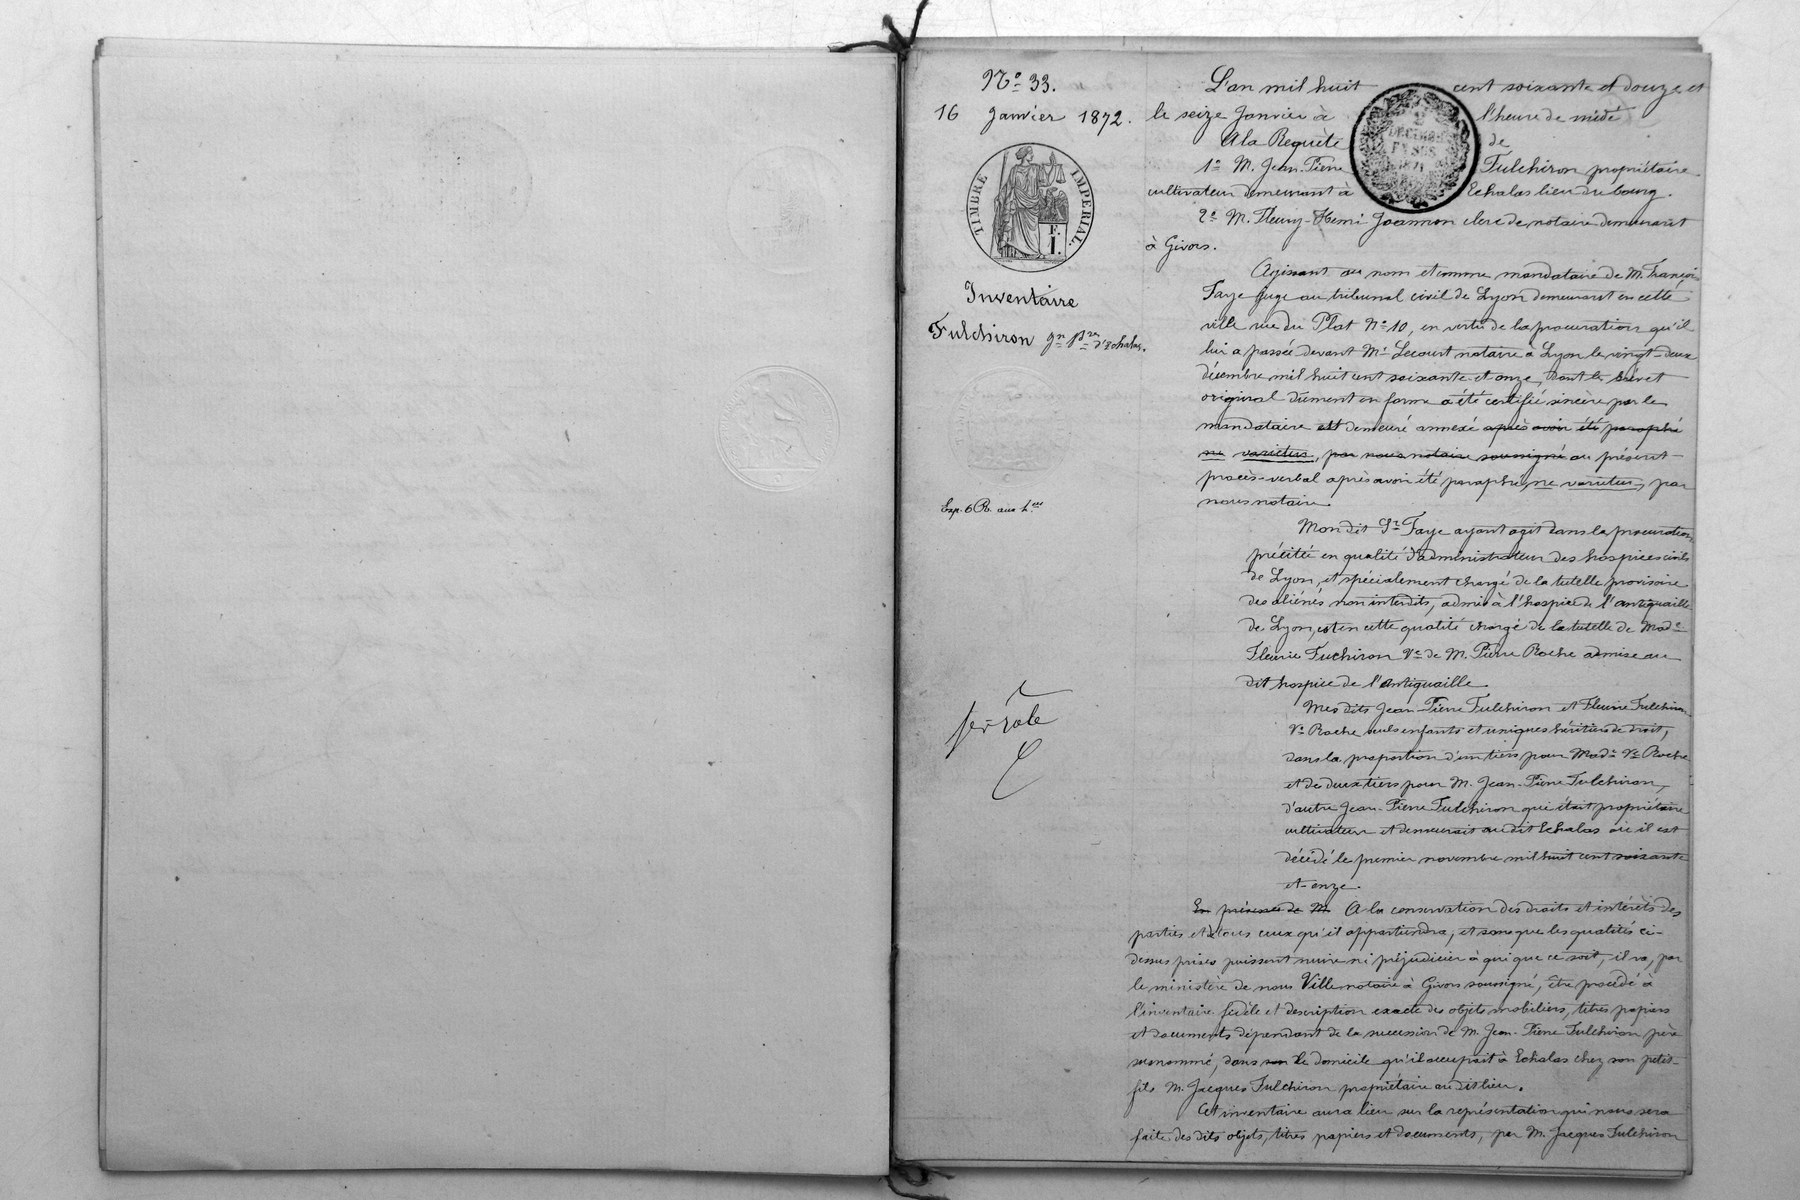 No 33.
16 Janvier 1872.
TIMBRE IMPERIAL.
F. I.
Inventaire
Fulchiron Jn Pre d'Echalas.
Exp. 6 R. aux h.
1er rôle
L'an mil huit cent soixante et douze, et
le seize Janvier à l'heure de midi
A la Requête de
1o M. Jean-Pierre Fulchiron propriétaire
cultivateur demeurant à Echalas lieu du bourg.
2o M. Fleury-Henri Joannon clerc de notaire demeurant
à Givors.
2 DECIMES EN SUS 1871
Agissant au nom et comme mandataire de M. François
Faye juge au tribunal civil de Lyon demeurant en cette
ville rue du Plat No 10, en vertu de la procuration qu'il
lui a passée devant Me Lecourt notaire à Lyon le vingt-deux
décembre mil huit cent soixante et onze, dont le brevet
original dûment en forme a été certifié sincère par le
mandataire est demeuré annexé après avoir été paraphé
ne varietur, par nous notaire soussigné au présent
procès-verbal après avoir été paraphé, ne varietur, par
nous notaire.
Mon dit Sr Faye ayant agit dans la procuration
précitée en qualité d'administrateur des hospices civils
de Lyon, et spécialement chargé de la tutelle provisoire
des aliénés non interdits, admis à l'hospice de l'antiquaille
de Lyon, et en cette qualité chargé de la tutelle de Made
Fleurie Fuchiron Ve de M. Pierre Roche admise au
dit hospice de l'antiquaille.
Mes dits Jean-Pierre Fulchiron et Fleurie Fulchiron
Ve Roche seuls enfants et uniques héritiers de droit,
dans la proportion d'un tiers pour Made Ve Roche
et de deux tiers pour M. Jean-Pierre Fulchiron,
d'autre Jean-Pierre Fulchiron qui était propriétaire
cultivateur et demeurait au dit Echalas où il est
décédé le premier novembre mil huit cent soixante
et onze.
En présence de M. A la conservation des droits et intérêts des
parties et de tous ceux qu'il appartiendra, et sans que les qualités ci-
dessus prises puissent nuire ni préjudicier à qui que ce soit, il va, par
le ministère de nous Ville notaire à Givors soussigné, être procédé à
l'inventaire fidèle et description exacte des objets mobiliers, titres papiers
et documents dépendant de la succession de M. Jean-Pierre Fulchiron père
susnommé, dans son le domicile qu'il occupait à Echalas chez son petit-
fils M. Jacques Fulchiron propriétaire au dit lieu.
Cet inventaire aura lieu sur la représentation qui nous sera
faite des dits objets, titres papiers et documents, par M. Jacques Fulchiron